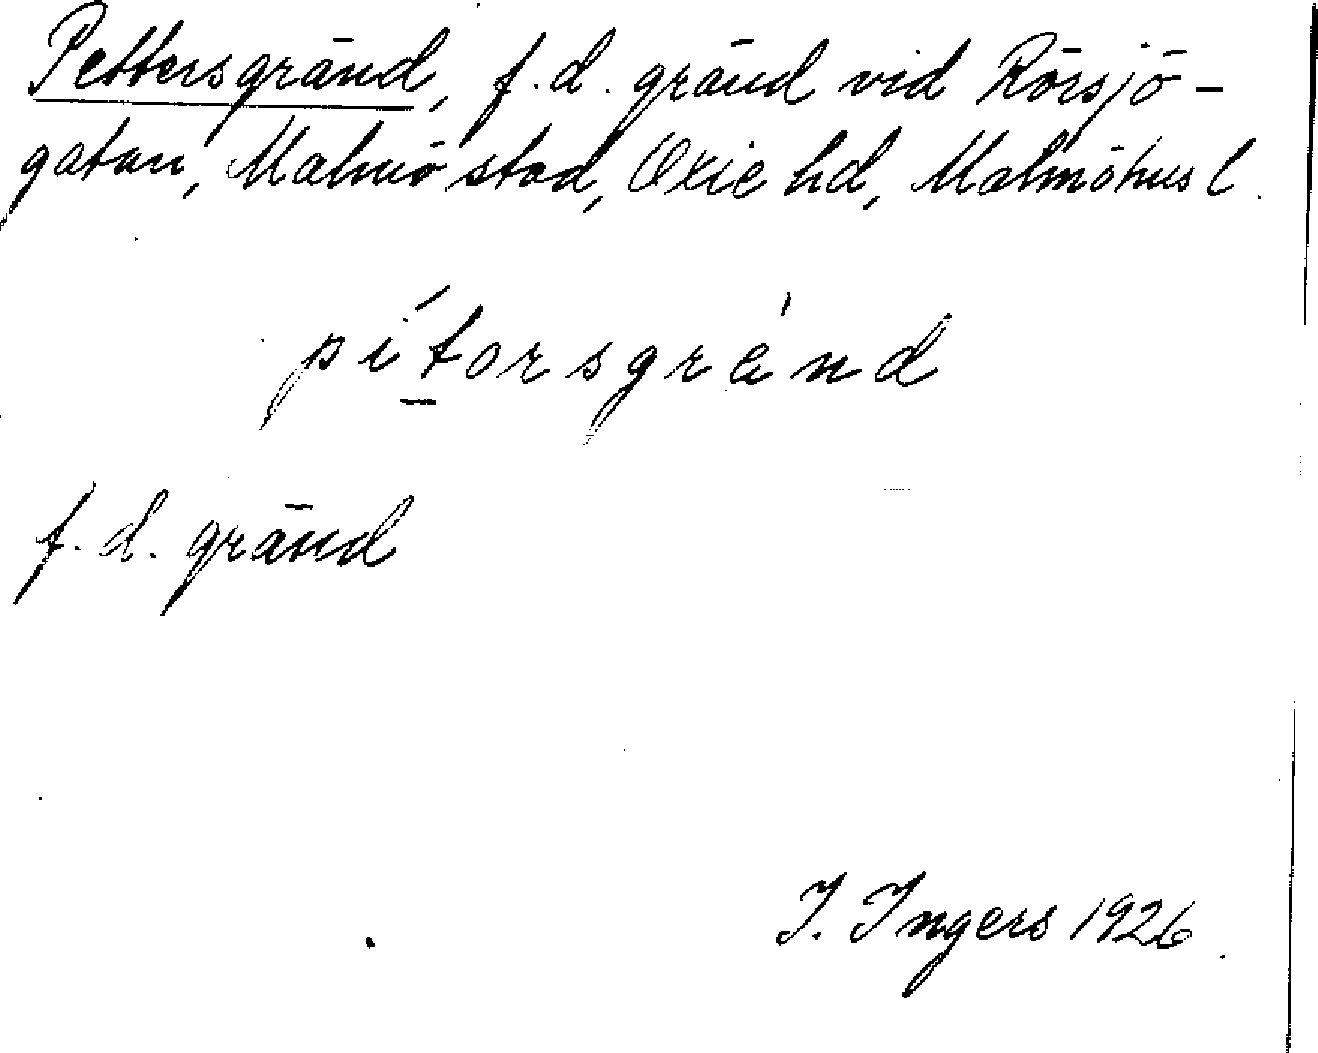 Pettersgränd, f.d. gränd vid Rörsjö-
gatan, Malmö stad, Oxie hd, Malmöhus l.
pítorsgrénd
f.d. gränd
I. Ingers 1926.